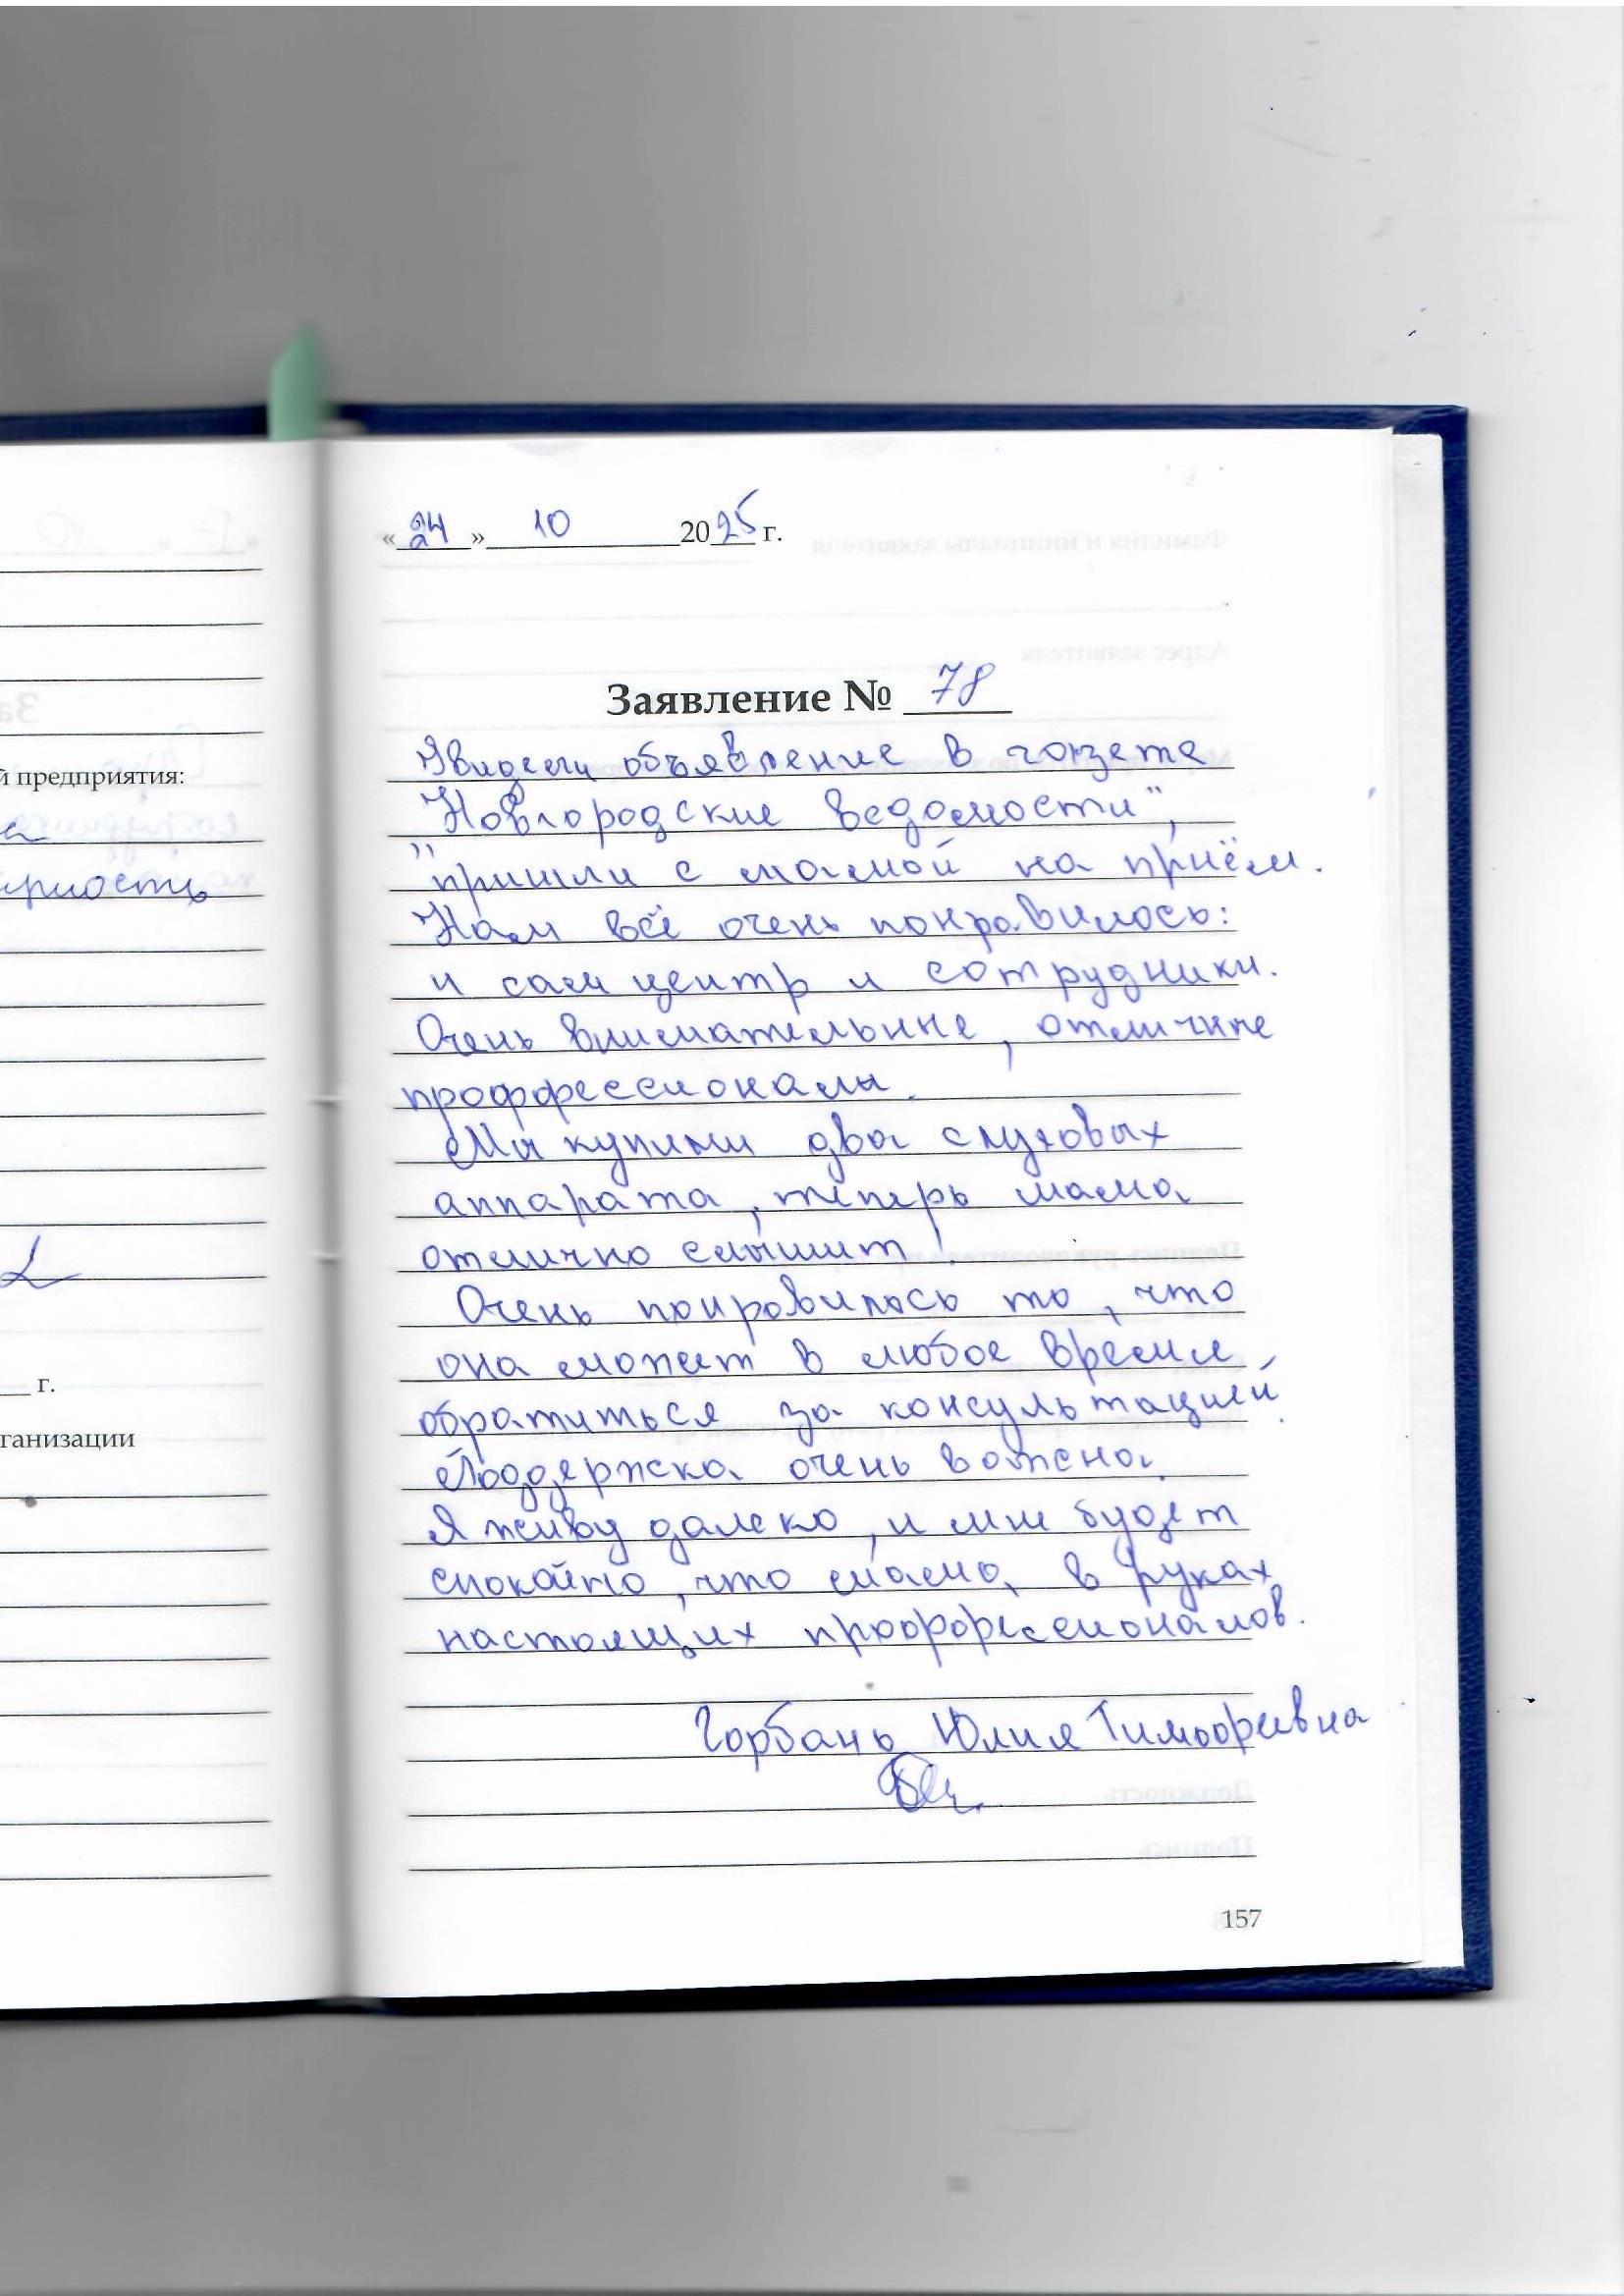 й предприятия:
г.
ганизации
« 24 » 10 2025 г.
Заявление № 78
Увидели объявление в газете
"Новгородские ведомости",
пришли с мамой на приём.
Нам всё очень понравилось:
и сам центр и сотрудники.
Очень внимательные, отличные
проффессионалы.
Мы купили два слуховых
аппарата, теперь мама
отлично слышит!
Очень понравилось то, что
она может в любое время
обратиться за консультацией.
Поддержка очень важна.
Я живу далеко, и мне будет
спокойно, что мама в руках
настоящих проффессионалов.
Горбань Юлия Тимофеевна
157